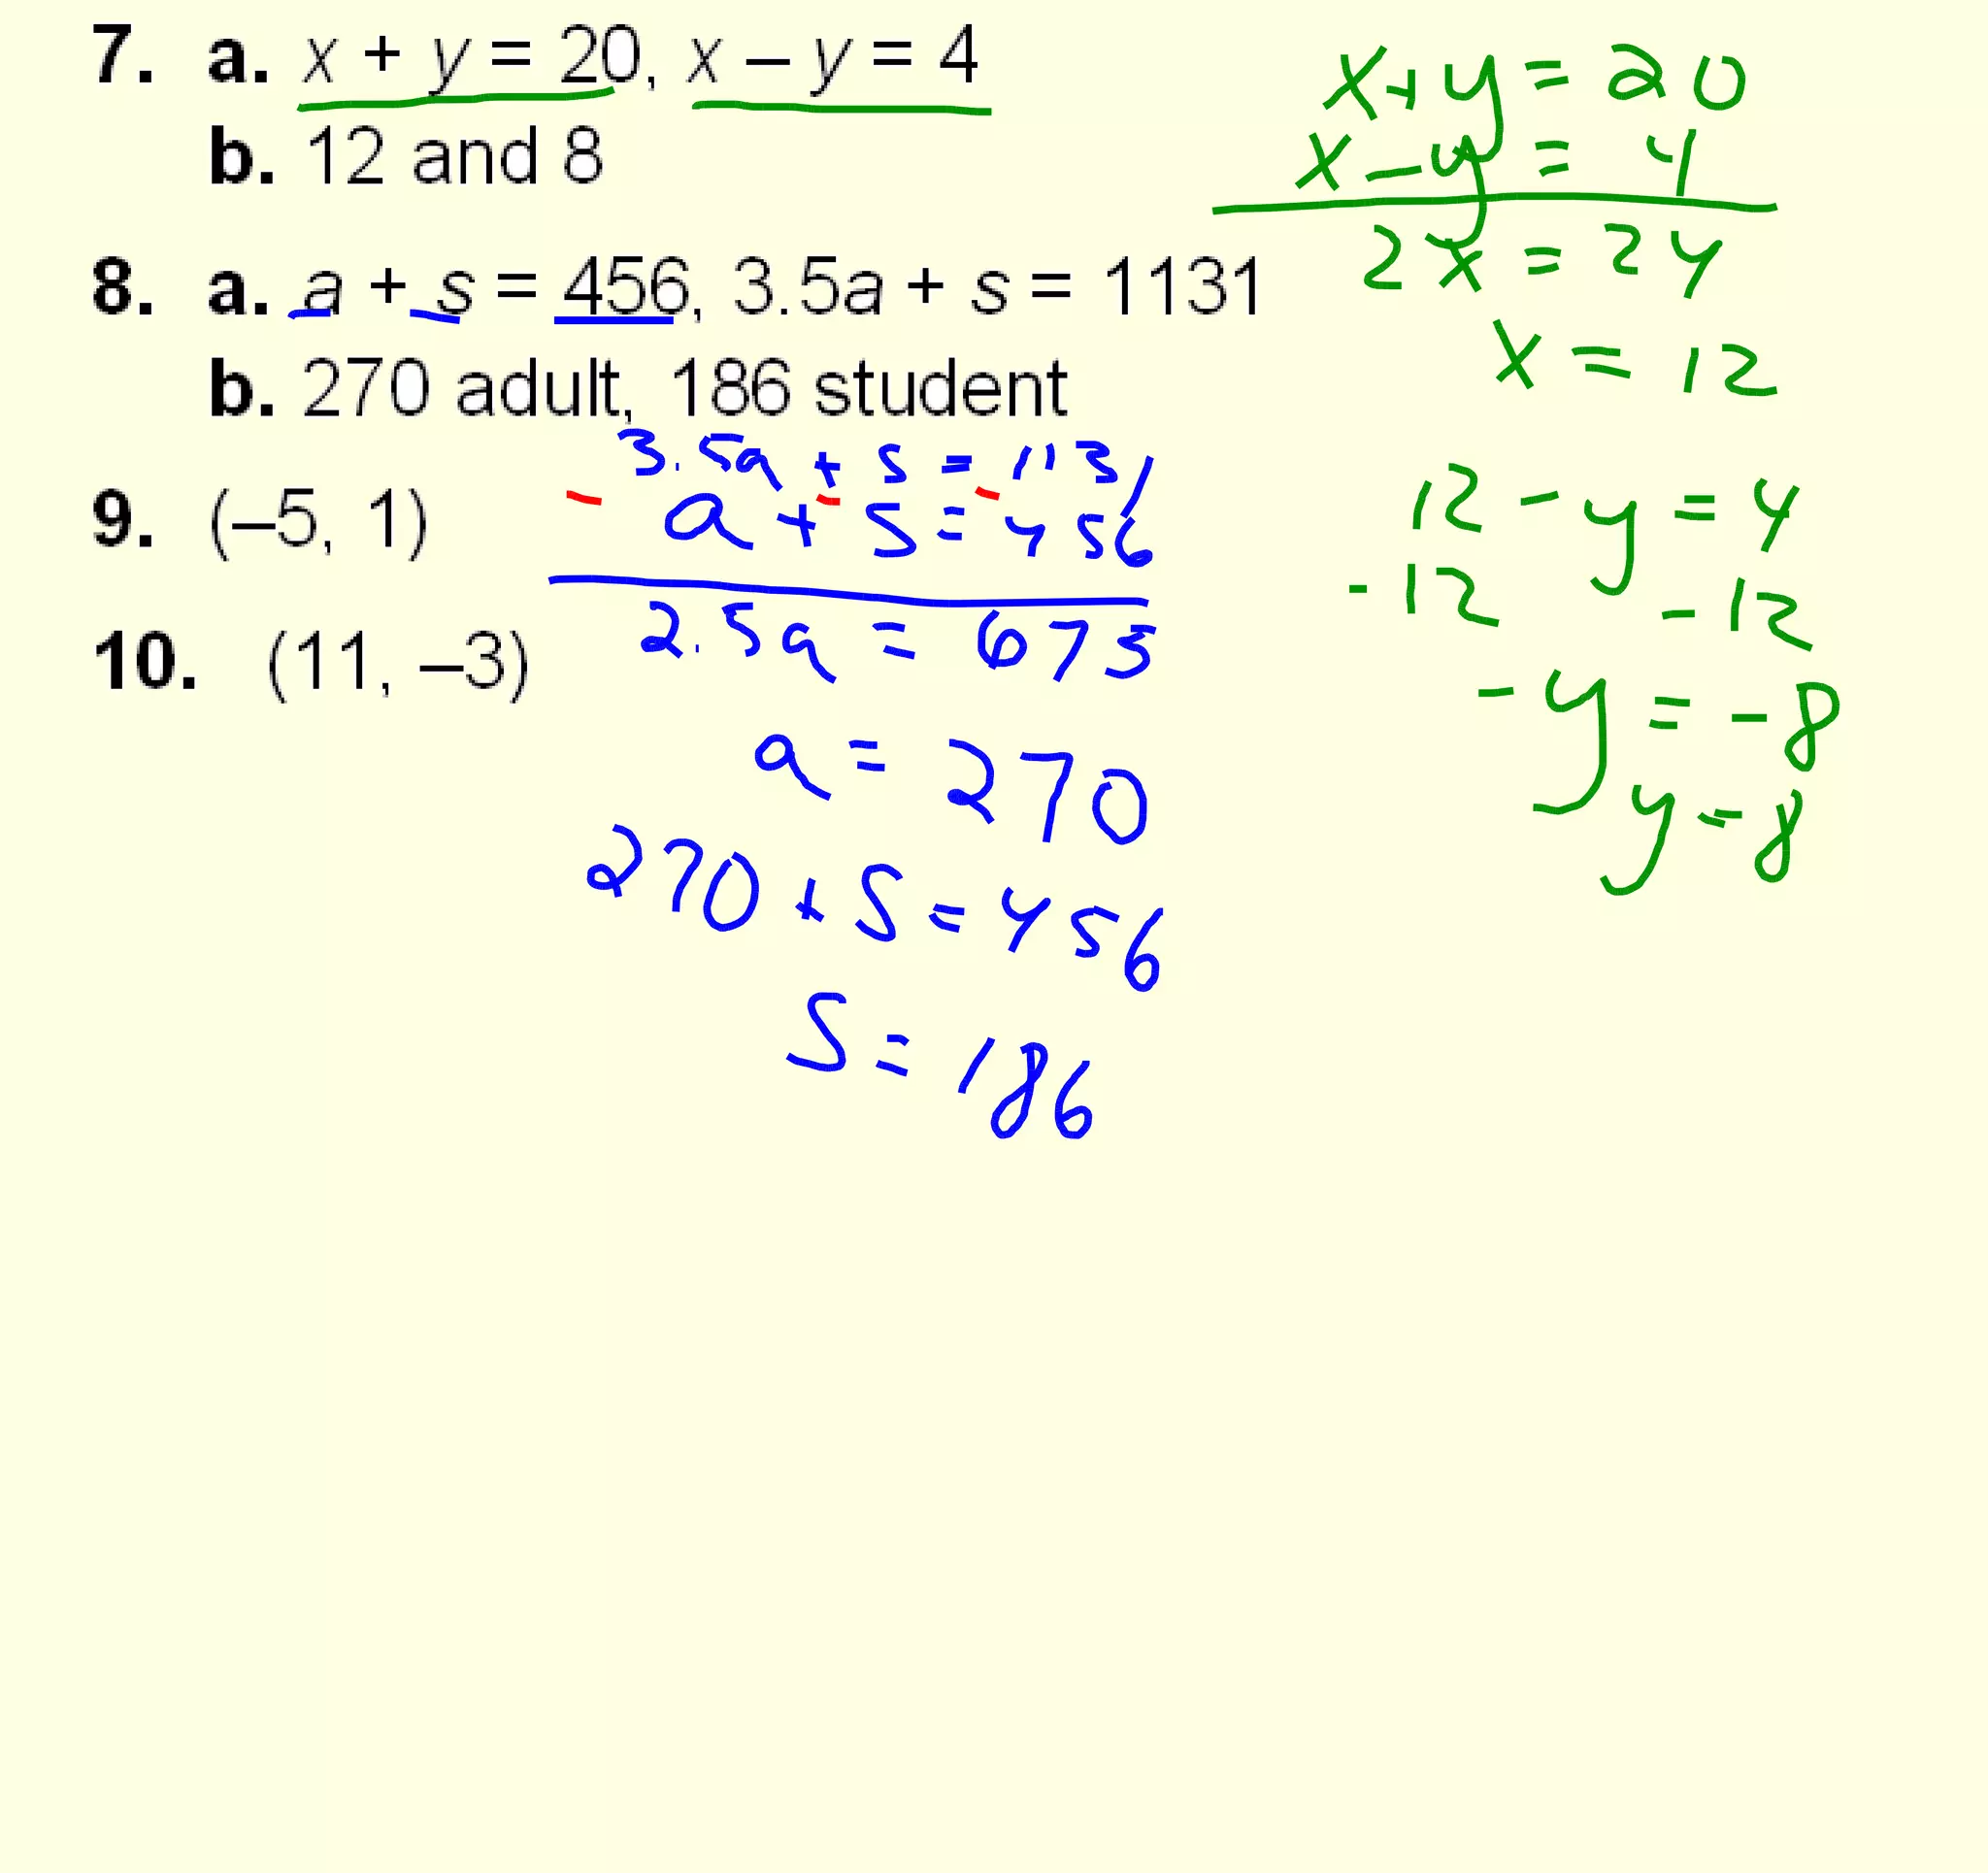 7. a. x + y = 20, x – y = 4
b. 12 and 8
8. a. a + s = 456, 3.5a + s = 1131
b. 270 adult, 186 student
9. (–5, 1)
10. (11, –3)
x + y = 20
x - y = 4
2x = 24
x = 12
12 - y = 4
-12 -12
-y = -8
y = 8
3.5a + s = 1131
- a + - s = - 456
2.5a = 675
a = 270
270 + s = 456
s = 186